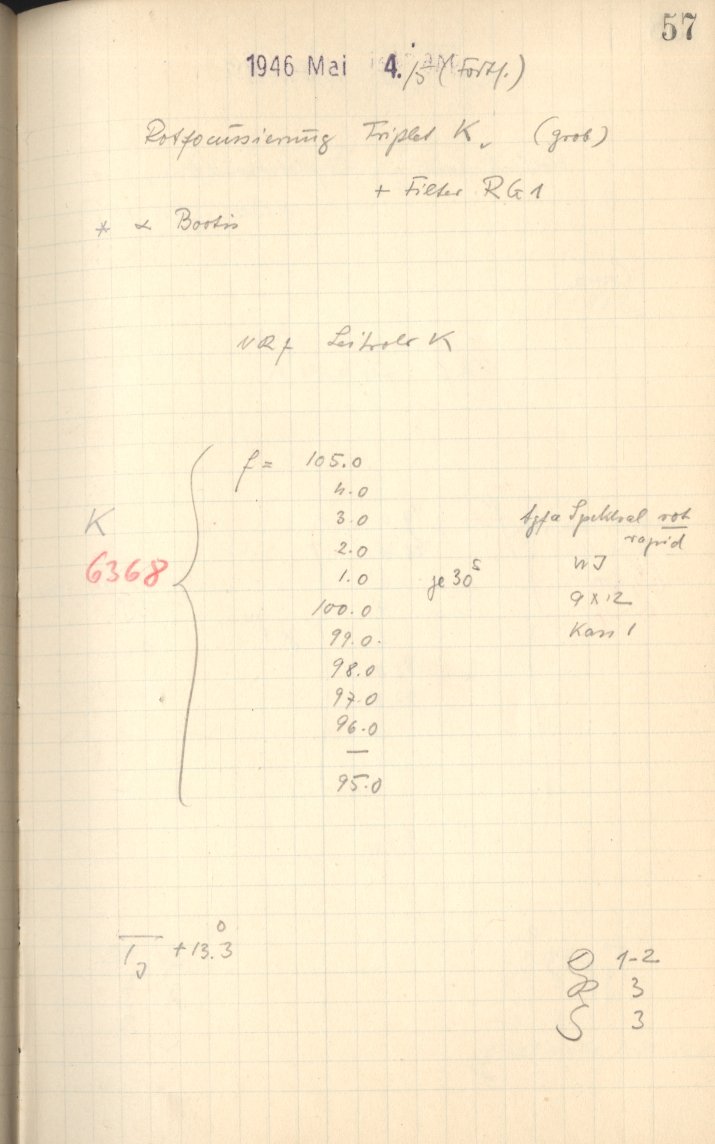 57
1946 Mai 4./5 (Fortf.)
Rotfocussierung Triplet K, (grob)
+ Filter RG1
* α Bootis
Leitrohr K
f = 105.0
4.0
3.0
2.0
1.0
100.0
99.0
98.0
97.0
96.0
—
95.0
K
6368
je 30s
Agfa Spektral rot
rapid
9x12
Kass 1
+13.3°
1-2
R 3
S 3